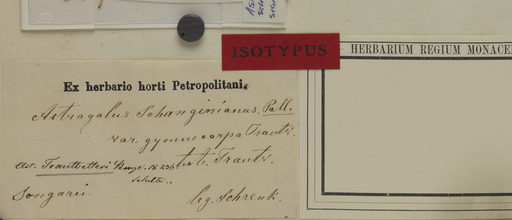 ISOTYPUS
HERBARIUM REGIUM MONACE
Ex herbario horti Petropolitani.
Astragalus Schanginianus. Pall.
var. gymnocarpa. Trautv.
Ast. Trautvetteri Bunge. N 236 teste Trautv.
Songaria. leg. Schrenk.